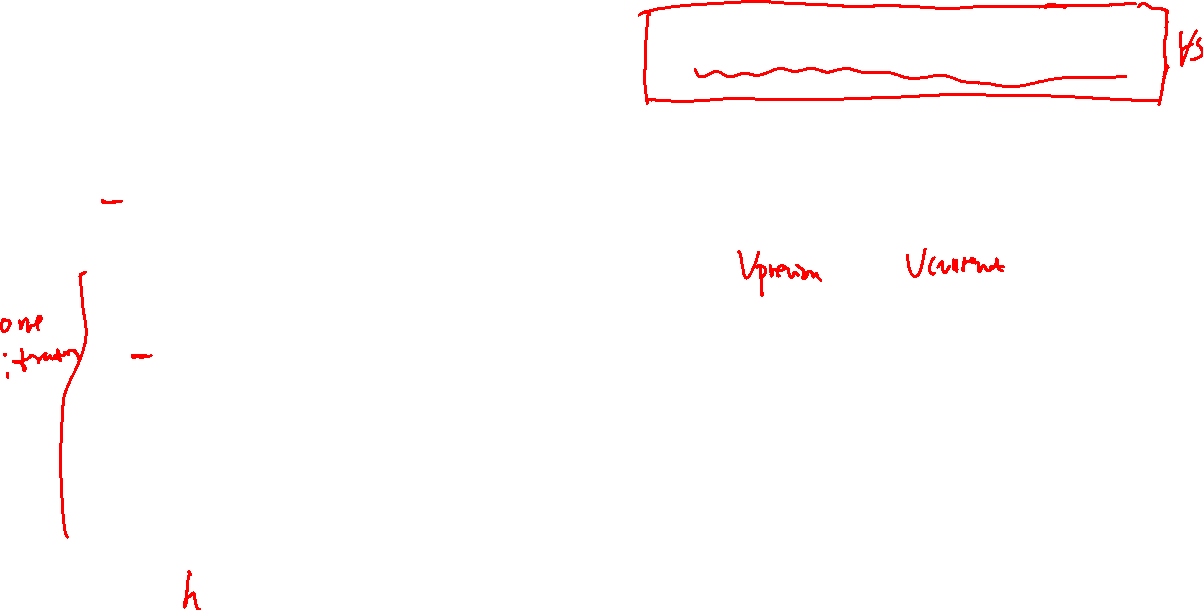 ∀s
Vprevious Vcurrent
one
iteration
h